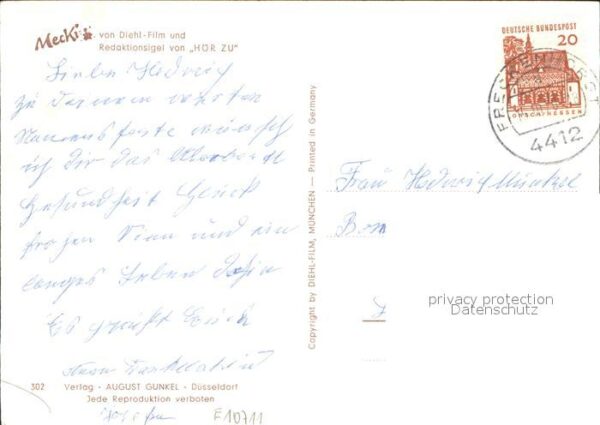 Mecki von Diehl-Film und
Redaktionsigel von „HÖR ZU"
Liebe Hedwig
zu Deinem
Namensfeste wünsch
ich dir das
Gesundheit Glück
frohen Sinn und ein
langes Leben
Es grüßt Euch
302 Verlag - AUGUST GUNKEL - Düsseldorf
Jede Reproduktion verboten
E10711
Copyright by DIEHL-FILM, MÜNCHEN — Printed in Germany
DEUTSCHE BUNDESPOST
20
LORSCH/HESSEN
FRECKENHORST
4412
Frau Hedwig Münkel
Bon
privacy protection
Datenschutz